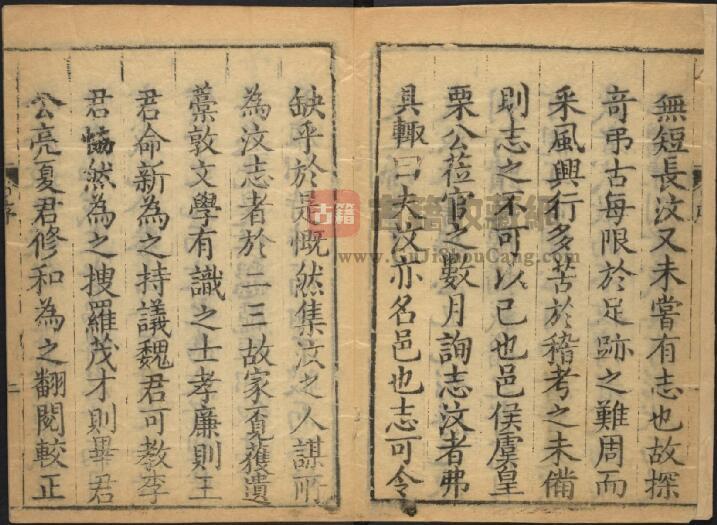 無短長汶又未嘗有志也故探
竒弔古每限於足跡之難周而
采風興行多苦於稽考之未備
則志之不可以已也邑侯虞皇
栗公蒞官之數月詢志汶者弗
具輙曰夫汶亦名邑也志可令
缺乎於是慨然集汶之人謀所
為汶志者於二三故家覓獲遺
藁敦文學有識之士孝廉則王
君命新為之持議魏君可教李
君
然為之搜羅茂才則畢君
公亮夏君修和為之翻閱較正
序
二
古籍
www.GuJiShouCang.com